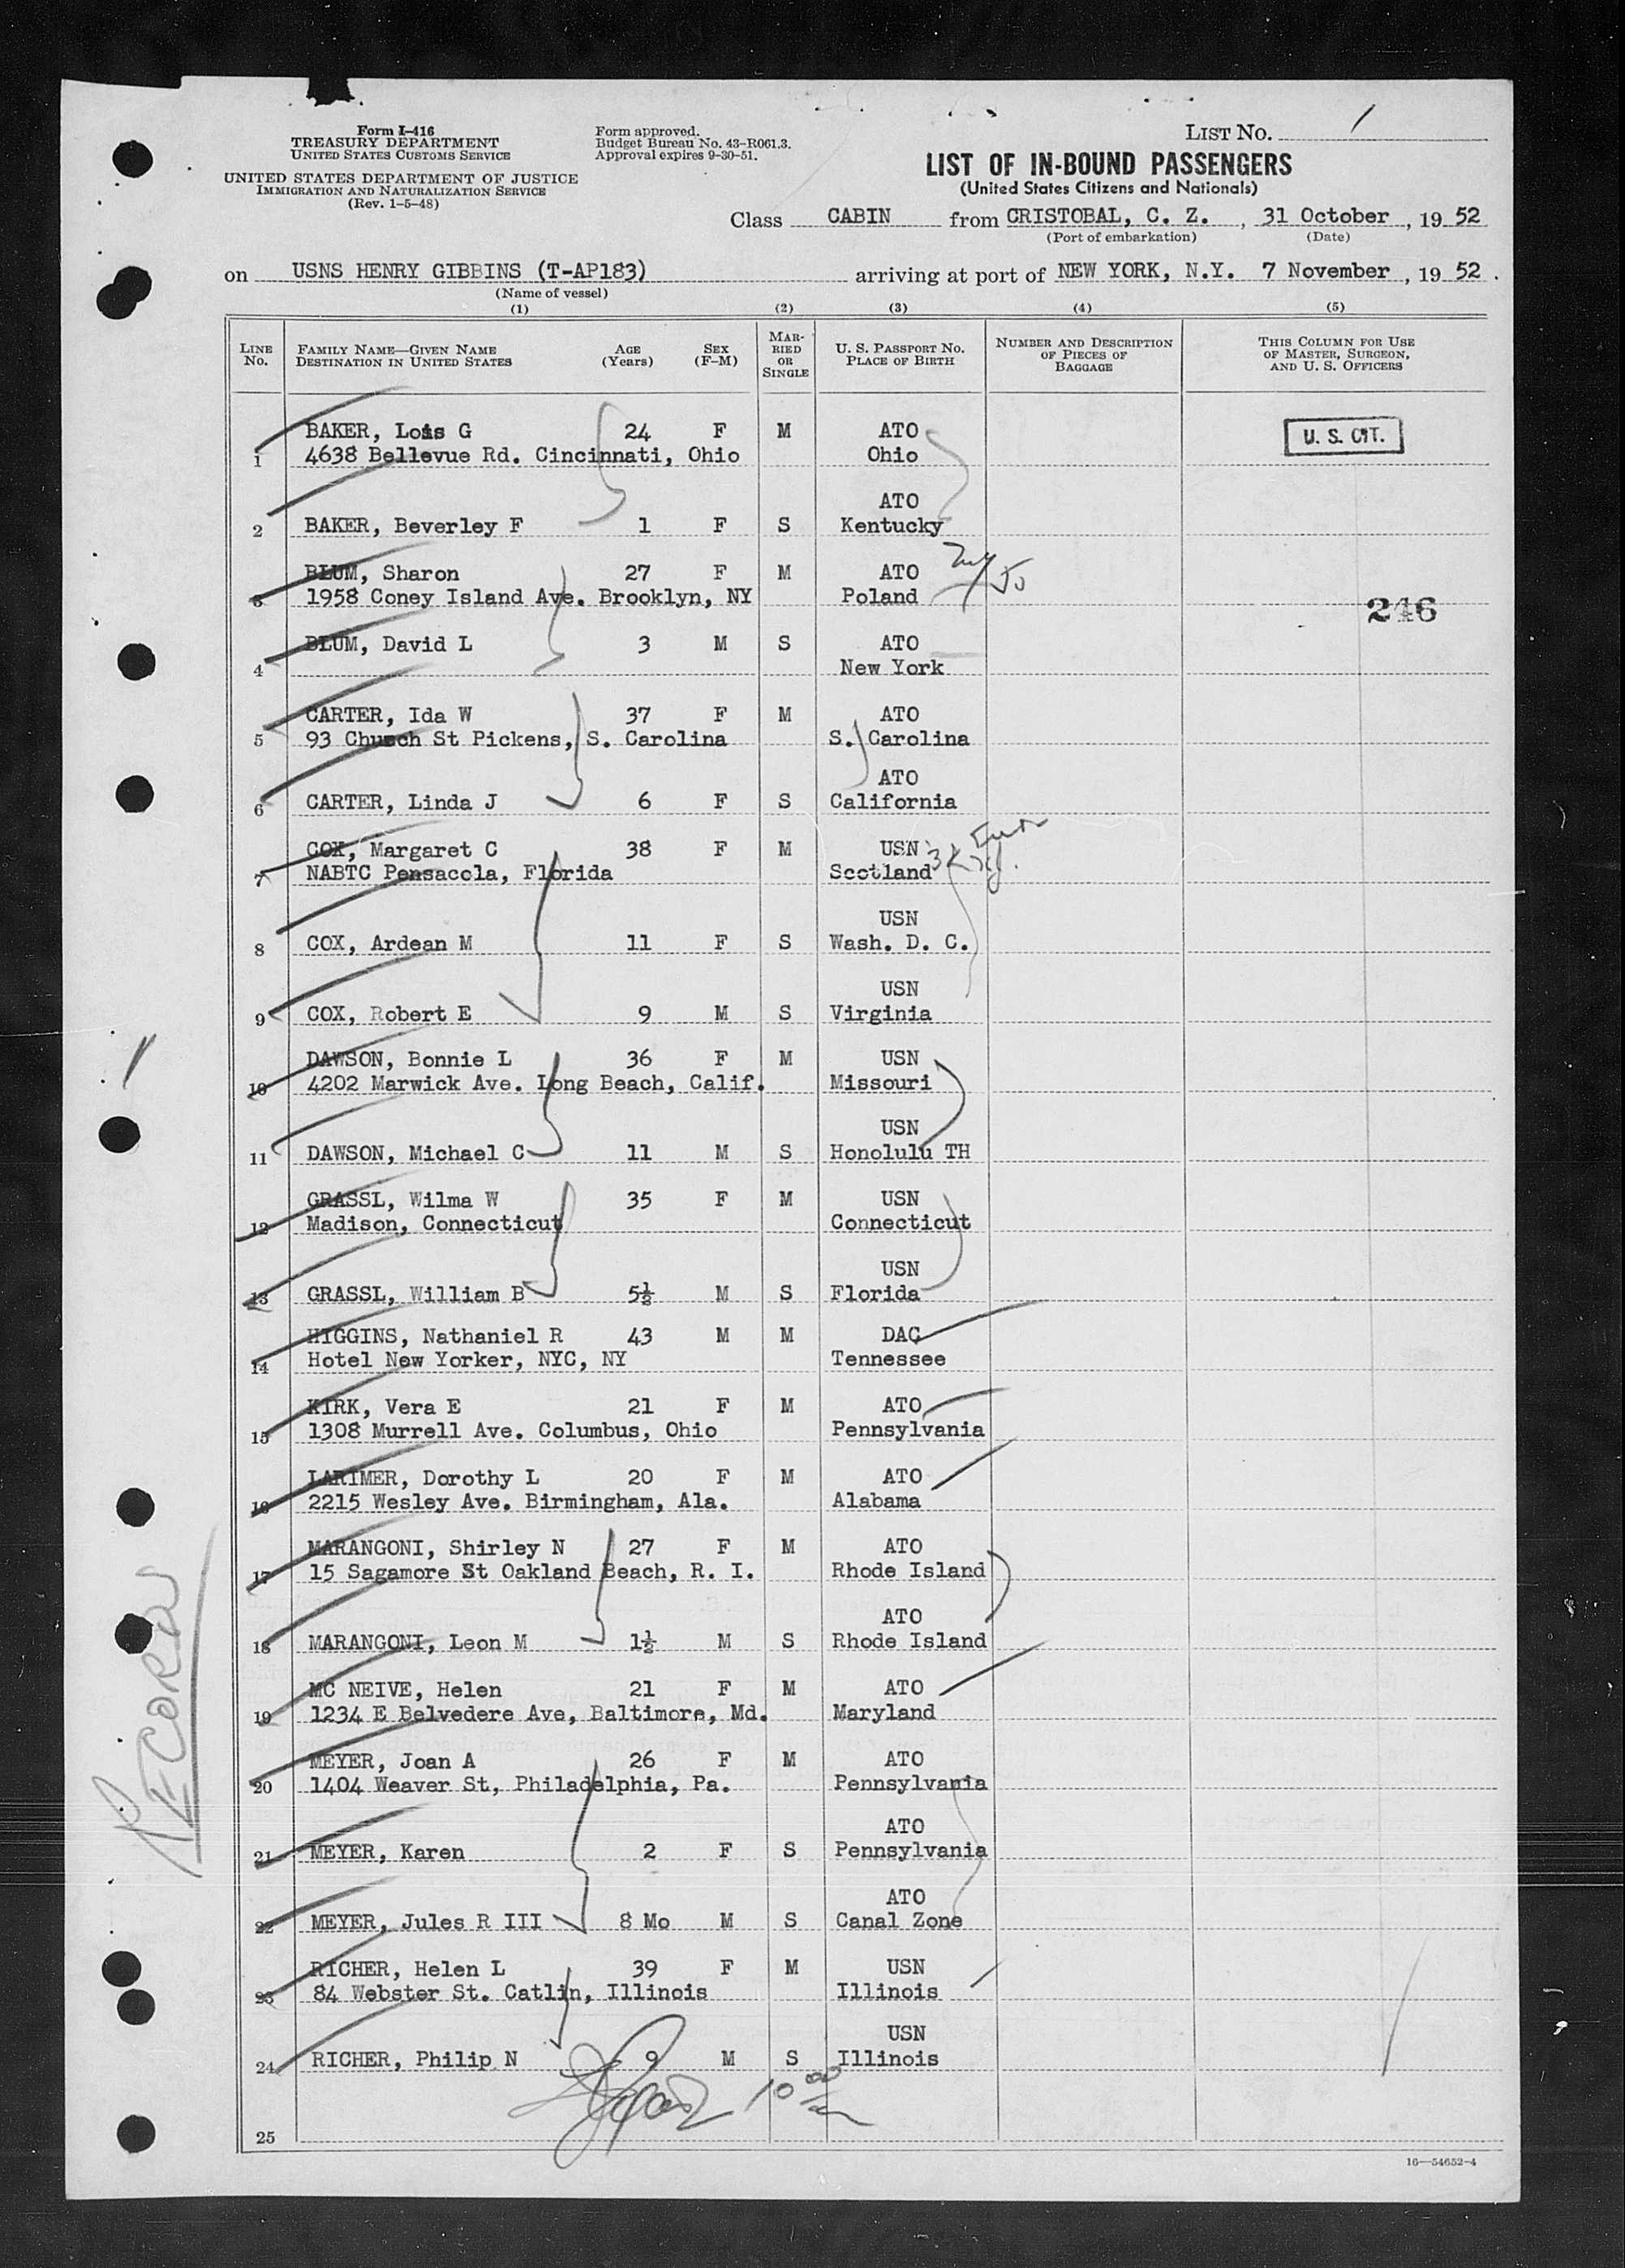 Form I-416
TREASURY DEPARTMENT
UNITED STATES CUSTOMS SERVICE
UNITED STATES DEPARTMENT OF JUSTICE
IMMIGRATION AND NATURALIZATION SERVICE
(Rev. 1-5-48)
Form approved.
Budget Bureau No. 43-R061.3.
Approval expires 9-30-51.
LIST NO. 1
LIST OF IN-BOUND PASSENGERS
(United States Citizens and Nationals)
Class CABIN from CRISTOBAL, C. Z., 31 October, 19 52
(Port of embarkation) (Date)
on USNS HENRY GIBBINS (T-AP183) arriving at port of NEW YORK, N.Y. 7 November, 19 52.
(Name of vessel)
(1) (2) (3) (4) (5)
LINE NO. FAMILY NAME—GIVEN NAME DESTINATION IN UNITED STATES AGE (Years) SEX (F-M) MARRIED OR SINGLE U. S. PASSPORT NO. PLACE OF BIRTH NUMBER AND DESCRIPTION OF PIECES OF BAGGAGE THIS COLUMN FOR USE OF MASTER, SURGEON, AND U. S. OFFICERS
BAKER, Lois G 24 F M ATO U. S. CIT.
1 4638 Bellevue Rd. Cincinnati, Ohio Ohio
ATO
2 BAKER, Beverley F 1 F S Kentucky
BLUM, Sharon 27 F M ATO
3 1958 Coney Island Ave. Brooklyn, NY Poland
246
BLUM, David L 3 M S ATO
4 New York
CARTER, Ida W 37 F M ATO
5 93 Church St Pickens, S. Carolina S. Carolina
ATO
6 CARTER, Linda J 6 F S California
COX, Margaret C 38 F M USN
7 NABTC Pensacola, Florida Scotland
USN
8 COX, Ardean M 11 F S Wash. D. C.
USN
9 COX, Robert E 9 M S Virginia
DAWSON, Bonnie L 36 F M USN
10 4202 Marwick Ave. Long Beach, Calif. Missouri
USN
11 DAWSON, Michael C 11 M S Honolulu TH
GRASSL, Wilma W 35 F M USN
12 Madison, Connecticut Connecticut
USN
13 GRASSL, William B 5½ M S Florida
HIGGINS, Nathaniel R 43 M M DAC
14 Hotel New Yorker, NYC, NY Tennessee
KIRK, Vera E 21 F M ATO
15 1308 Murrell Ave. Columbus, Ohio Pennsylvania
LARIMER, Dorothy L 20 F M ATO
16 2215 Wesley Ave. Birmingham, Ala. Alabama
MARANGONI, Shirley N 27 F M ATO
17 15 Sagamore St Oakland Beach, R. I. Rhode Island
ATO
18 MARANGONI, Leon M 1½ M S Rhode Island
MC NEIVE, Helen 21 F M ATO
19 1234 E Belvedere Ave, Baltimore, Md. Maryland
MEYER, Joan A 26 F M ATO
20 1404 Weaver St, Philadelphia, Pa. Pennsylvania
ATO
21 MEYER, Karen 2 F S Pennsylvania
ATO
22 MEYER, Jules R III 8 Mo M S Canal Zone
RICHER, Helen L 39 F M USN
23 84 Webster St. Catlin, Illinois Illinois
USN
24 RICHER, Philip N 9 M S Illinois
25
16—54652-4